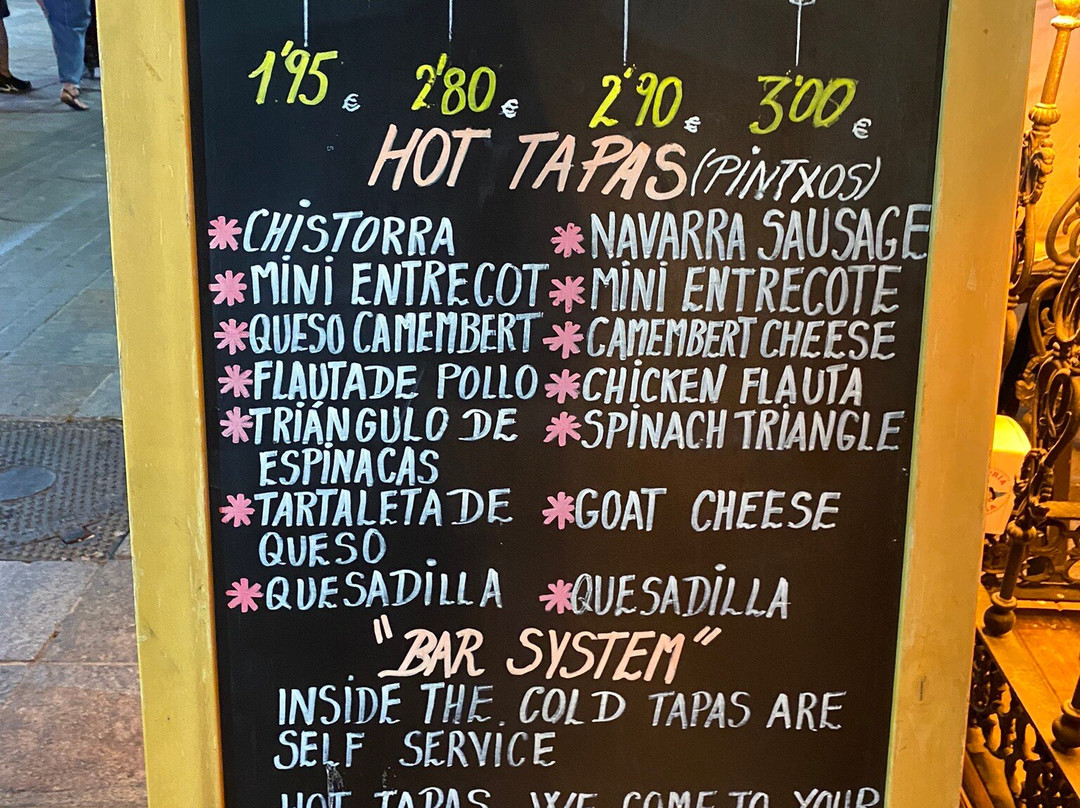 1'95 € 2'80 € 2'90 € 3'00 €
HOT TAPAS (PINTXOS)
*CHISTORRA *NAVARRA SAUSAGE
*MINI ENTRECOT *MINI ENTRECOTE
*QUESO CAMEMBERT *CAMEMBERT CHEESE
*FLAUTA DE POLLO *CHICKEN FLAUTA
*TRIÁNGULO DE *SPINACH TRIANGLE
ESPINACAS
*TARTALETA DE *GOAT CHEESE
QUESO
*QUESADILLA *QUESADILLA
"BAR SYSTEM"
INSIDE THE. COLD TAPAS ARE
SELF SERVICE
HOT TAPAS WE COME TO YOUR